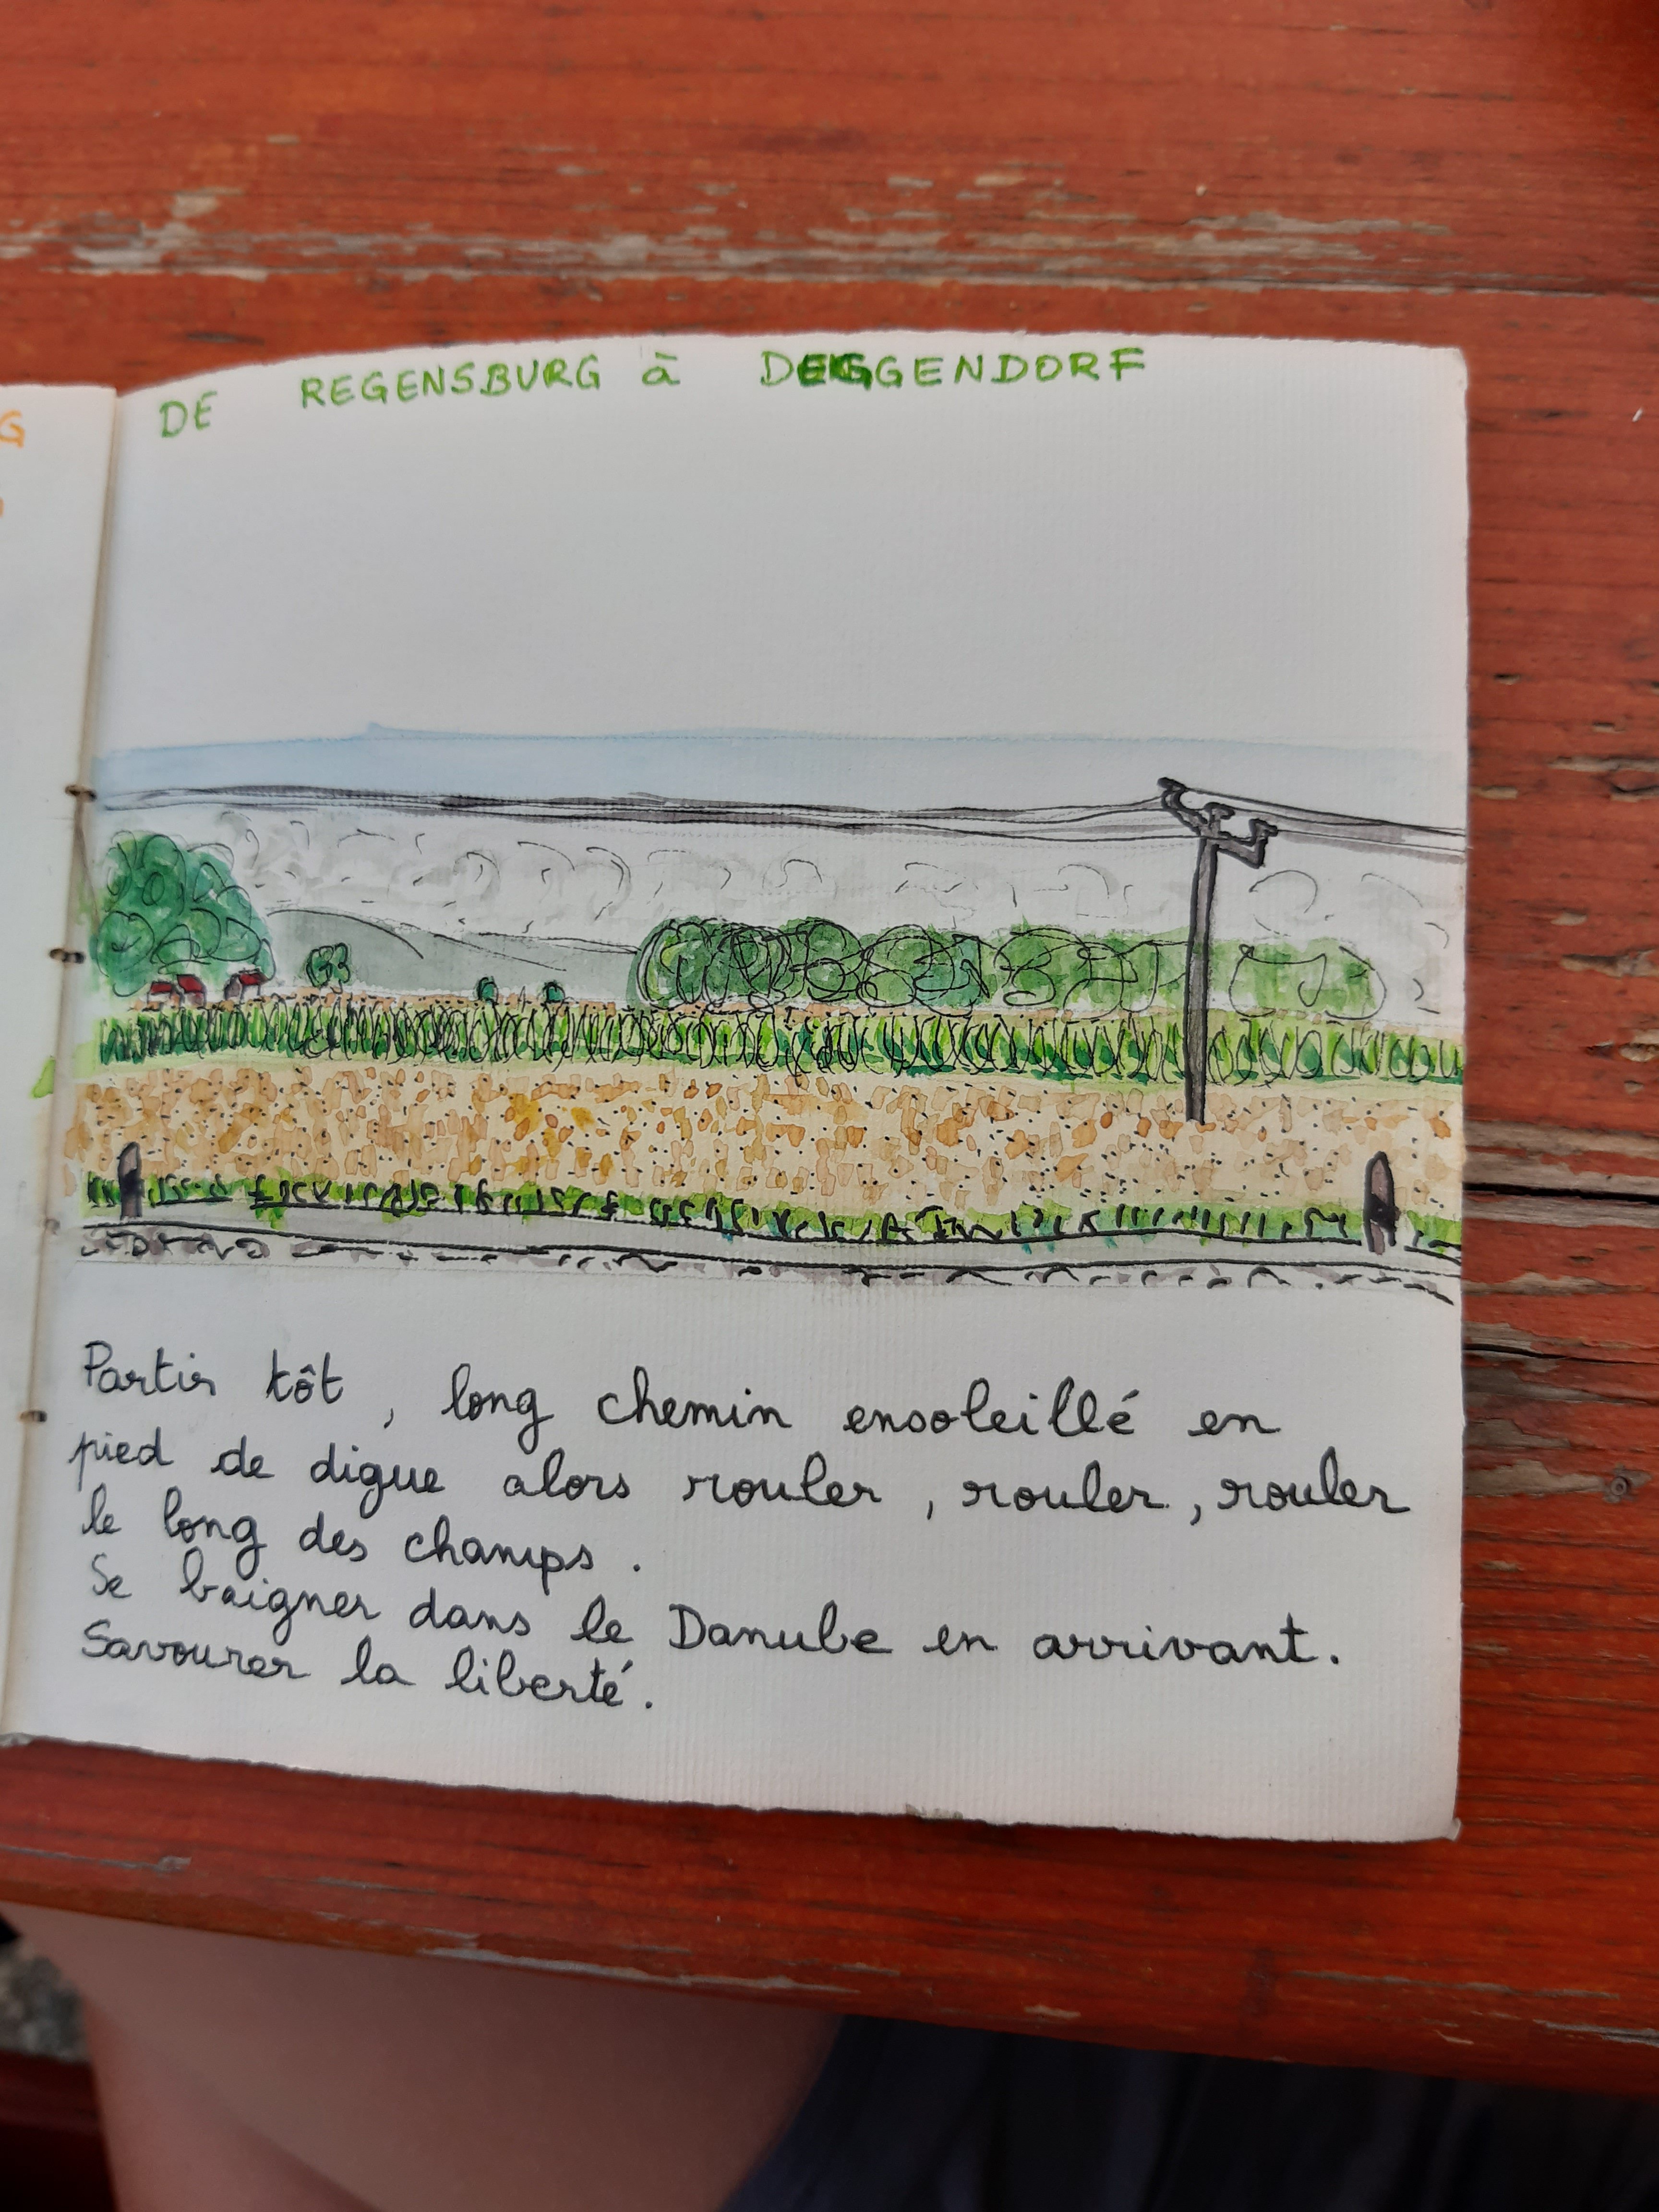 G
DE REGENSBURG à DEGGENDORF
Partir tôt, long chemin ensoleillé en
pied de digue alors rouler, rouler, rouler
le long des champs.
Se baigner dans le Danube en arrivant.
Savourer la liberté.